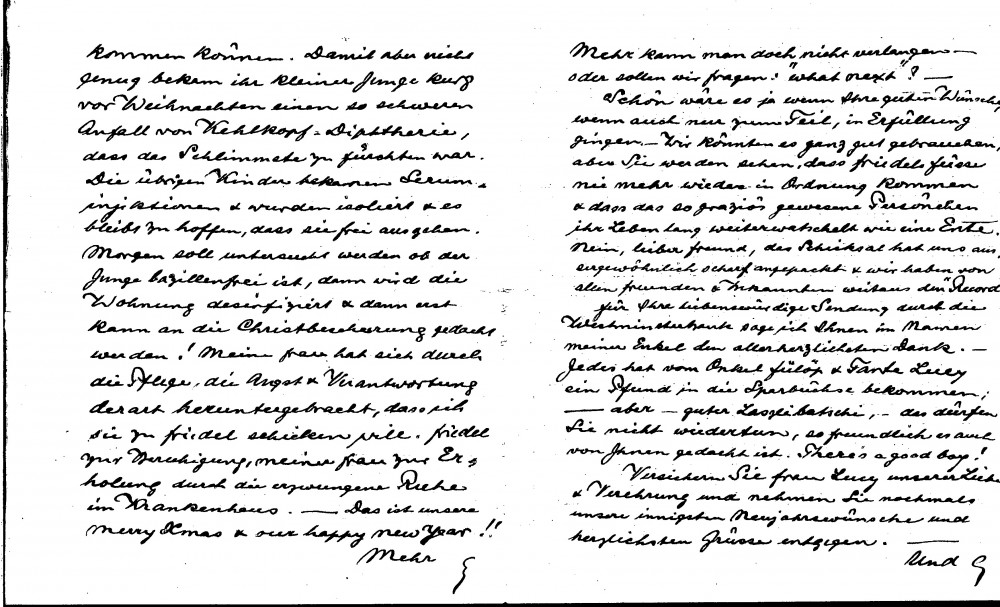 kommen können. Damit aber nicht
genug bekam ihr kleiner Junge kurz
vor Weihnachten einen so schweren
Anfall von Kehlkopf-Diphtherie,
dass das Schlimmste zu fürchten war.
Die übrigen Kinder bekamen Serum-
injektionen & wurden isoliert & es
bleibt zu hoffen, dass sie frei ausgehen.
Morgen soll untersucht werden ob der
Junge bazillenfrei ist, dann wird die
Wohnung desinfiziert & dann erst
kann an die Christbescheerung gedacht
werden! Meine Frau hat sich durch
die Pflege, die Angst & Verantwortung
derart heruntergebracht, dass ich
sie zu Friedel schicken will. Friedel
zur Beruhigung, meiner Frau zur Er-
holung durch die erzwungene Ruhe
im Krankenhaus. — Das ist unsere
merry Xmas & our happy new Year!!
Mehr
Mehr kann man doch nicht verlangen —
oder sollen wir fragen: "what next"? —
Schön wäre es ja wenn Ihre guten Wünsche,
wenn auch nur zum Teil, in Erfüllung
gingen. — Wir könnten es ganz gut gebrauchen,
aber Sie werden sehen, dass Friedels Füsse
nie mehr wieder in Ordnung kommen
& dass das so graziös gewesene Persönchen
ihr Leben lang weiterwatschelt wie eine Ente.
Nein, lieber Freund, das Schicksal hat uns aus-
sergewöhnlich scharf angepackt & wir haben von
allen Freunden & Bekannten weitaus den Record
Für Ihre liebenswürdige Sendung durch die
Westminsterbank sage ich Ihnen im Namen
meiner Enkel den allerherzlichsten Dank. —
Jedes hat vom Onkel Fülöp & Tante Lucy
ein Pfund in die Sparbüchse bekommen;
— aber — guter Laszlibatschi, — das dürfen
Sie nicht wiedertun, so freundlich es auch
von Ihnen gedacht ist. There's a good boy!
Versichern Sie Frau Lucy unserer Liebe
& Verehrung und nehmen Sie nochmals
unsere innigsten Neujahrswünsche und
herzlichsten Grüsse entgegen. —
Und